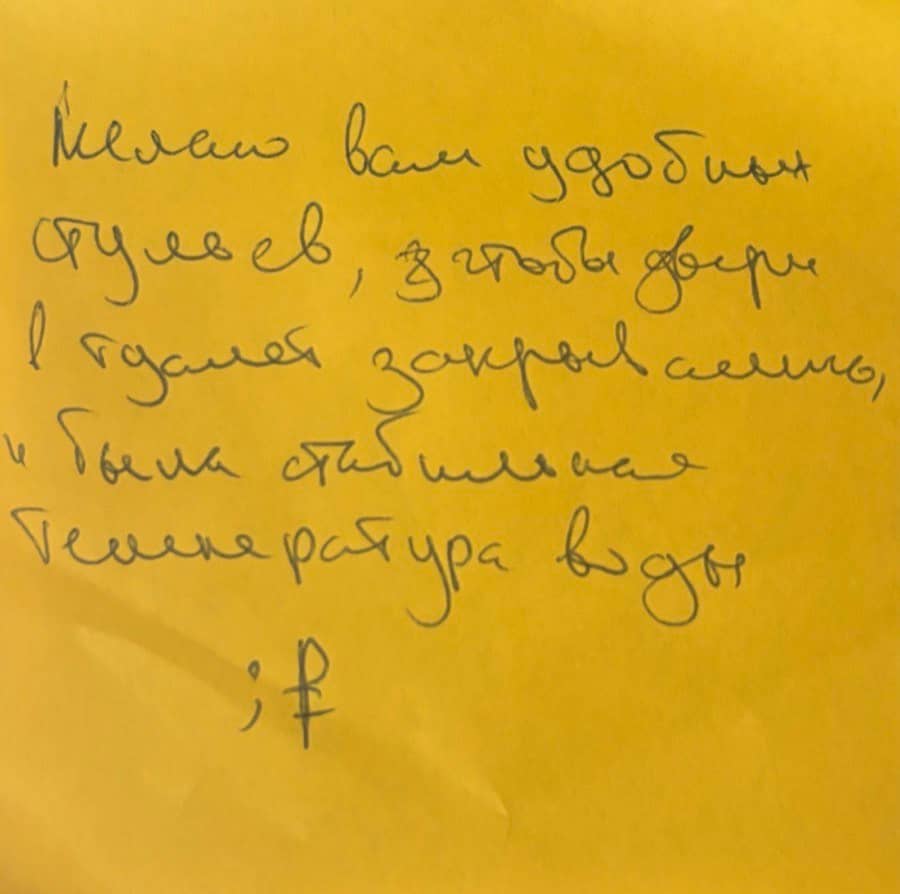 Желаю вам удобных
стульев, чтобы двери
в туалет закрывались,
и была стабильная
температура воды
;₽